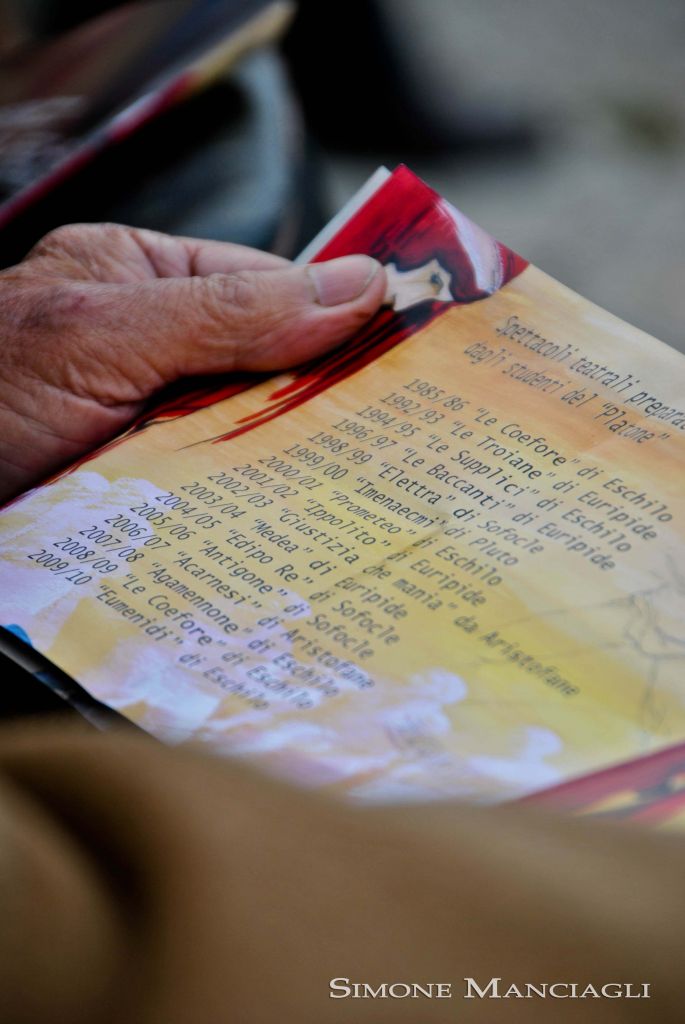 Spettacoli teatrali prepara
dagli studenti del "Platone"
1985/86 "Le Coefore" di Eschilo
1992/93 "Le Troiane" di Euripide
1994/95 "Le Supplici" di Eschilo
1996/97 "Le Baccanti" di Euripide
1998/99 "Elettra" di Sofocle
1999/00 "Imenaecmi" di Pluto
2000/01 "Prometeo" di Eschilo
2001/02 "Ippolito" di Euripide
2002/03 "Giustizia che mania" da Aristofane
2003/04 "Medea" di Euripide
2004/05 "Edipo Re" di Sofocle
2005/06 "Antigone" di Sofocle
2006/07 "Acarnesi" di Aristofane
2007/08 "Agamennone" di Eschilo
2008/09 "Le Coefore" di Eschilo
2009/10 "Eumenidi" di Eschilo
SIMONE MANCIAGLI